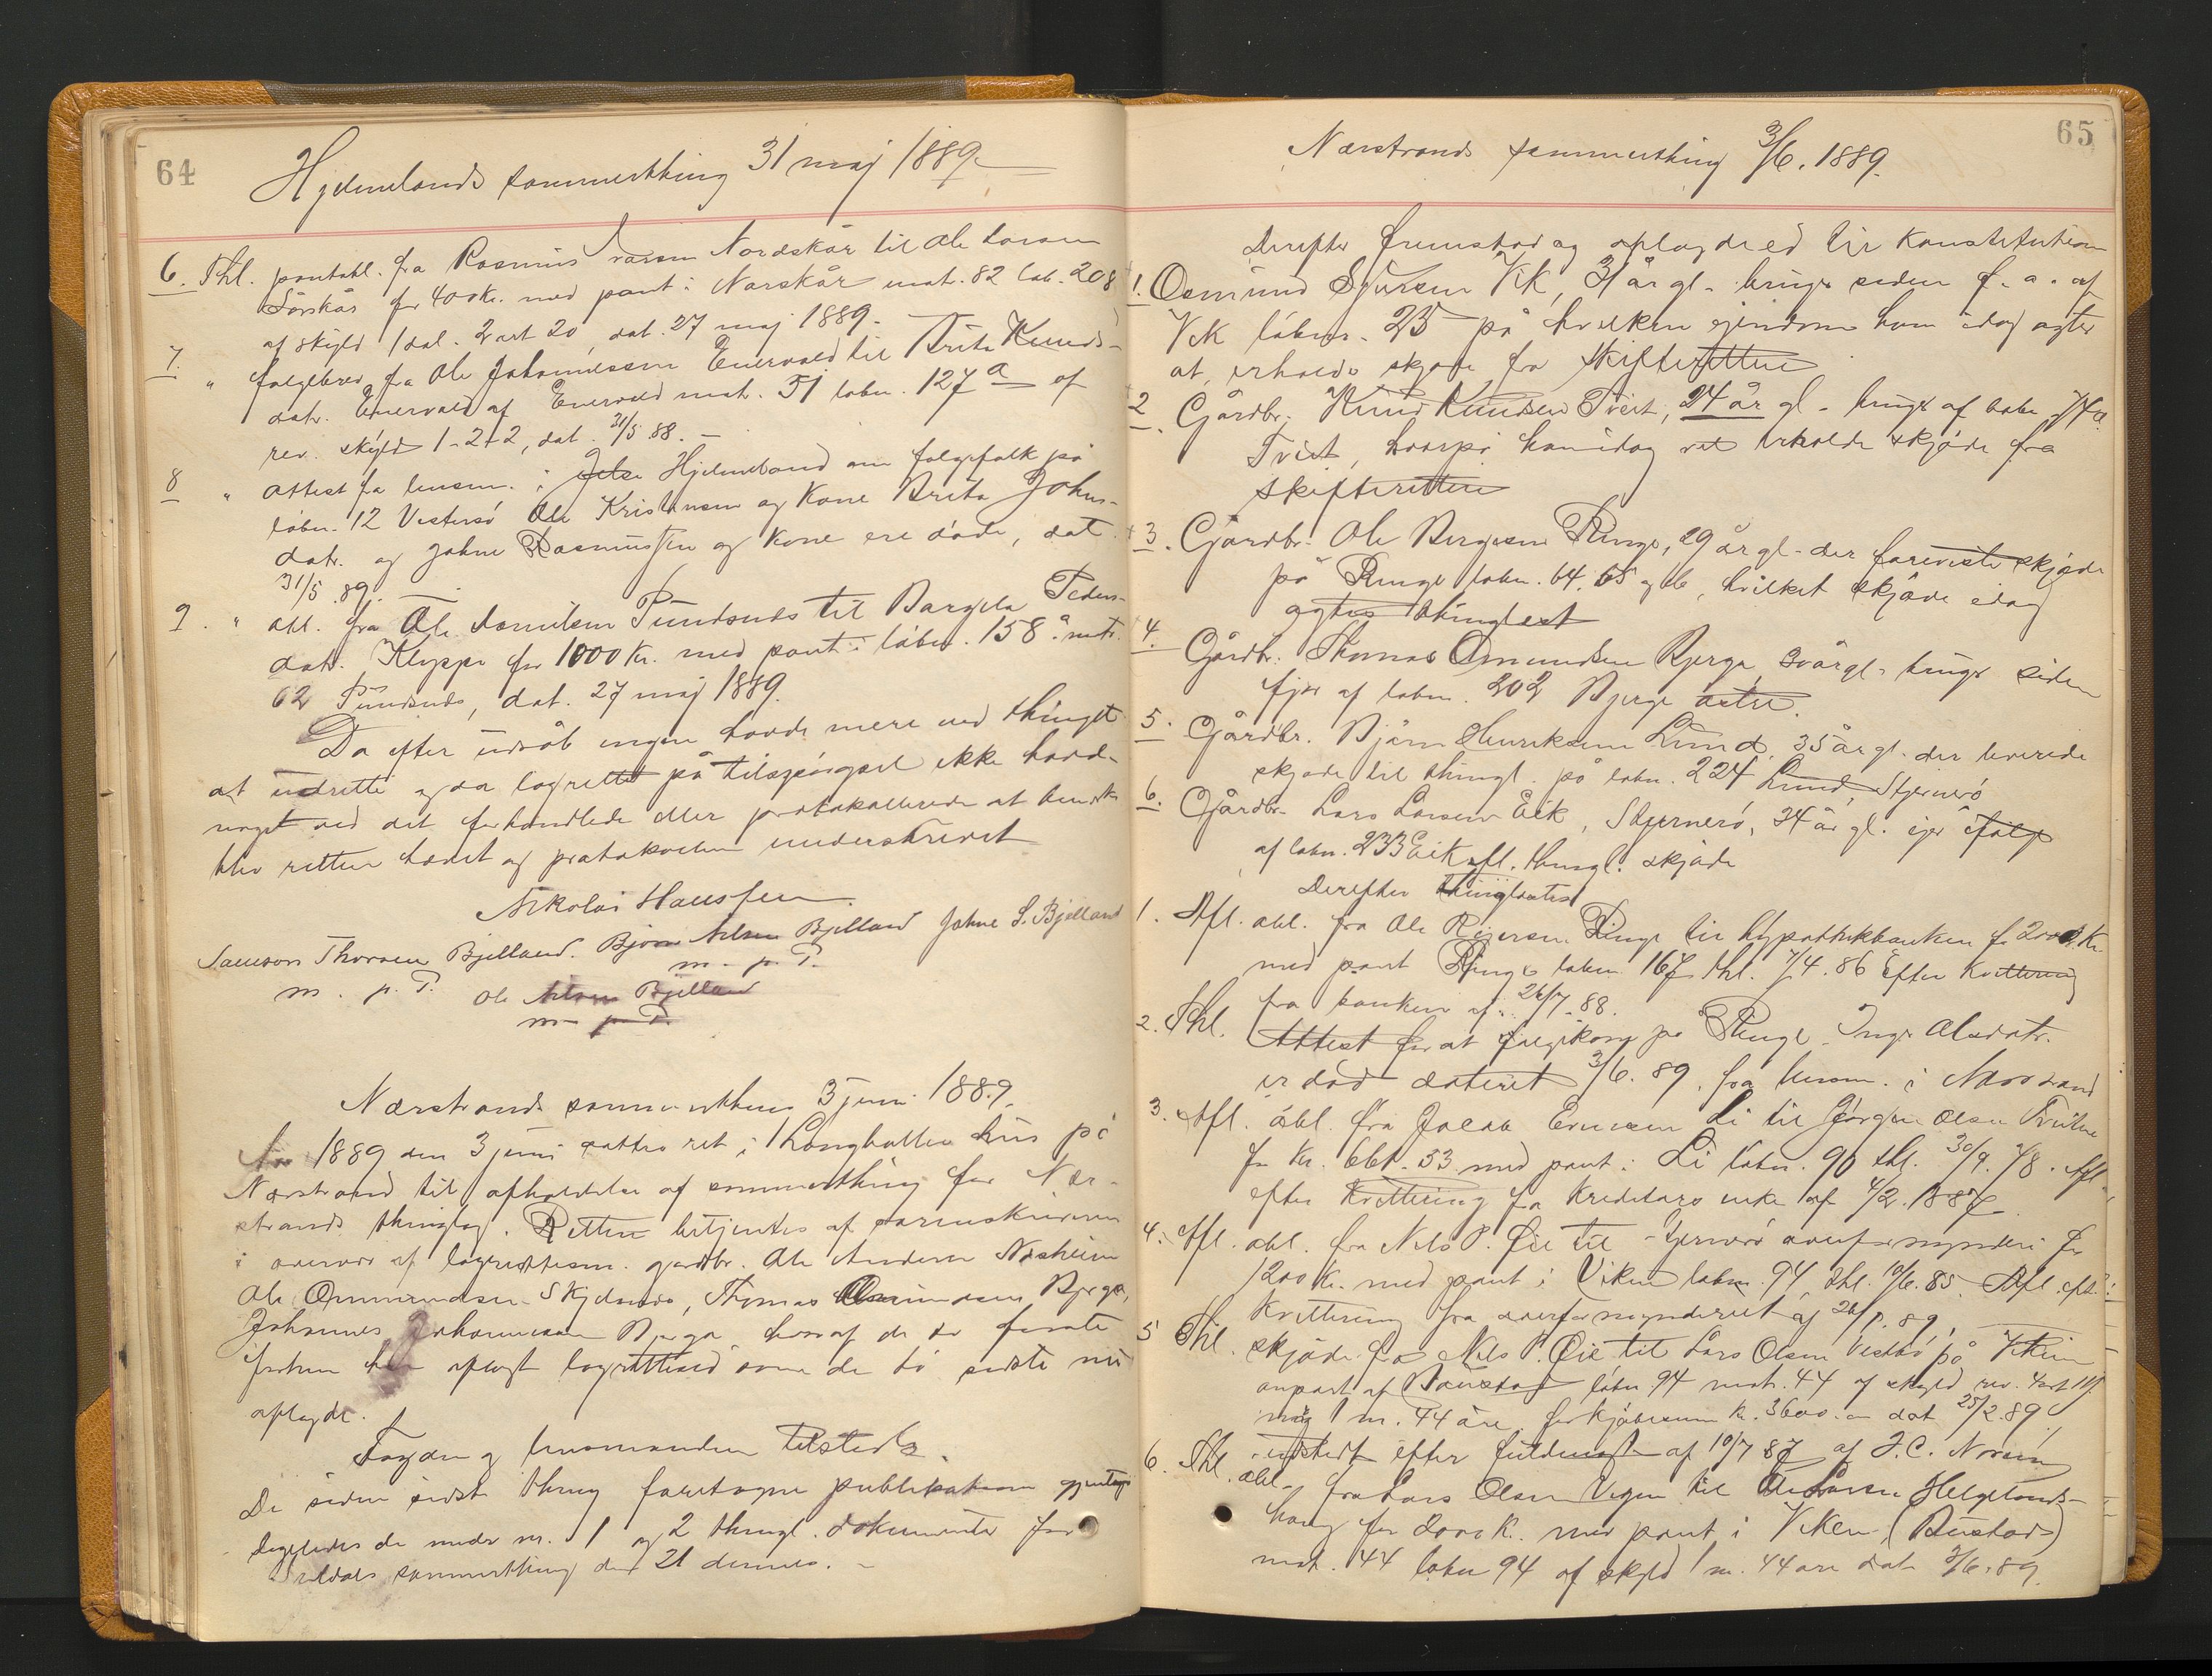 64
Hjelmelands sommerthing 31 maj 1889
6. Thl. pantobl. fra Rasmus Nordskår til Ole Larsen
Sörskår for 400 Kr. med pant i Norskår mat. 82 löb. 208
af skyld 1 dal. 2 ort 20, dat. 27 maj 1889.
7. " følgebrev fra Ole Johannessen Enervold til Brita Knuds-
datr. Enervold af Enervold matr. 51 löbn. 127 a af
rev. skyld 1-2-2, dat. 31/5 88.
8 " attest fra lensm. i Jelse Hjelmeland om følgefolk på
löbn. 12 Vestersö Ole Kristensen og Kone Brita Johns-
datr. og John Rasmussen og Kone ere döde, dat.
31/5 89.
9. " obl. fra Ole Danielsen Pundsnes til Bargela Peders-
datr. Kleppe for 1000 Kr. med pant i löbn. 158 matr.
62 Pundsnes, dat. 27 maj 1889.
Da efter udråb ingen havde mere ved thinget
at udrette og da lagrettet på tilspörgsel ikke havde
noget ved det forhandlede eller protokollerede at bemærke
blev retten hævet og protokollen underskrevet
Nikolai Hanssen
Samson Thorsen Bjelland. Bjorn Nilsen Bjelland John S. Bjelland
m. p. P. m. p. P.
Ole Nilsen Bjelland
m. p. P.
Nærstrands sommerthing 3 juni 1889.
År 1889 den 3 juni sattes ret i Langballes hus på
Nærstrand til afholdelse af sommerthing for Nær-
strands thinglag. Retten betjentes af sorenskriveren
i overvær af lagrettesm. gårdbr. Ole Andersen Næsheim
Ole Ommundsen Skjelnæs, Thomas Omundsen Bjerga,
Johannes Johannessen Bjerga hvoraf de to første
forhen have aflagt lagretteed som de to sidste nu
aflagde.
Fogden og lensmanden tilstede.
De siden sidste thing foretagne publikationer gjentoges
ligeledes de under nr. 1 og 2 thingl. dokumenter for
Suldals sommerthing den 21 dennes.
65
Nærstrands sommerthing 3/6. 1889.
Derefter fremstod og aflagde ed til Konstitutionen
1. Osmund Sjursen Vik, 31 år gl. bruger siden f. a. af
Vik löbnr. 25 på hvilken ejendom han idag agter
at erholde skjöde fra skifteretten
2. Gårdbr. Knud Knudsen Tveit, 24 år gl. bruger af löbn. 74a
Tveit, hvorpå han idag vil erholde skjöde fra
skifteretten
3. Gårdbr. Ole Bergesen Ringe, 29 år gl. der foreviste skjöde
på Ringe löbn. 64. 65 og 6, hvilket skjöde idag
agtes thinglæst
4. Gårdbr. Thomas Omundsen Bjerga, 30 år gl. bruger siden
ifjor af löbn. 202 Bjerge östre.
5. Gårdbr. Björn Henriksen Lund, 35 år gl. der leverede
skjöde til thingl. på löbn. 224 Lund, Stjernerö
6. Gårdbr. Lars Larsen Eik, Stjernerö, 34 år gl. ejer ifölge
af löbn. 233 Eik efl. thingl. skjöde
Derefter thinglæstes
1. Afl. obl. fra Ole Reiersen Ringe til Hypothekbanken for 2000 Kr.
med pant Ringe löbn. 167 thl. 7/4. 86 efter kvittering
fra banken af 26/7. 88.
2. Thl. Attest for at følgekone på Ringe Inger Olsdatr.
er död dateret 3/6. 89. fra lensm. i Nærstrand
3. Afl. obl. fra Jacob Li til Jörgen Olsen Tveiten
for Kr. 661.53 med pant i Li löbn. 90 thl. 30/9. 78. Afl.
efter kvittering fra kreditors enke af 4/2. 1887
4. Afl. obl. fra Nils P. Öie til Stjernerö overformynderi for
1200 Kr. med pant i Viken löbn. 94, thl. 10/6. 85. Afl. eft.
kvittering fra overformynderiet af 26/1. 89.
5 Thl. skjöde fra Nils P. Öie til Lars Olsen Vestbö på Viken
anpart af Baustad löbn 94 matr. 44 af skyld rev. 4 ort 11
ny 1 m. 44 öre for kjöbesum Kr. 3600. – dat. 25/2. 89.
udstedt efter fuldmagt af 10/7 87 af J. C. Norem
6. Thl. obl. fra Lars Olsen Vigen til Ole Larsen Helgelands-
haug for 2000 K. med pant i Viken (Baustad)
mat. 44 löbn 94 af skyld 1 m. 44 öre dat. 3/6. 89.